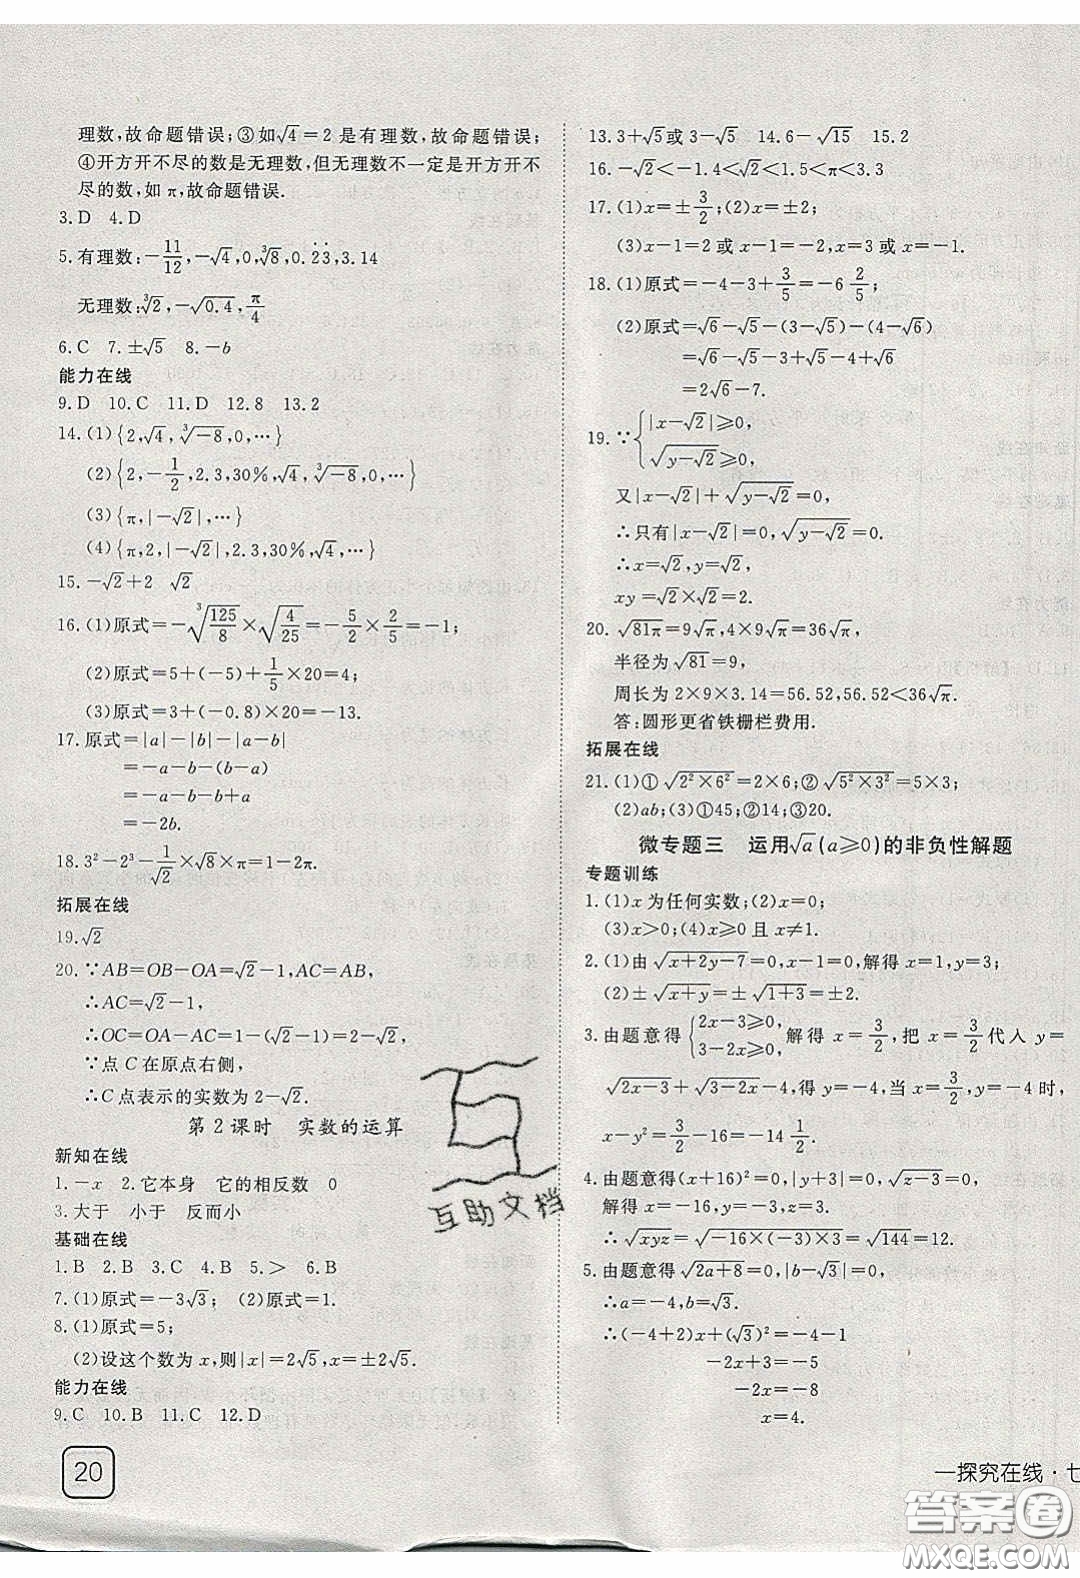 理数,故命题错误;③如√4=2是有理数,故命题错误;
④开方开不尽的数是无理数,但无理数不一定是开方开不
尽的数,如π,故命题错误.
3.D 4.D
5.有理数:-11/12,-√4,∛8,0.2̇3̇,3.14
无理数:∛2,-√0.4,π/4
6.C 7.±√5 8.-b
能力在线
9.D 10.C 11.D 12.8 13.2
14.(1){2,√4,∛-8,0,…}
(2){2,-1/2,2.3,30%,√4,∛-8,0,…}
(3){π,|-√2|,…}
(4){π,2,|-√2|,2.3,30%,√4,…}
15.-√2+2 √2
16.(1)原式=-∛(125/8)×√(4/25)=-5/2×2/5=-1;
(2)原式=5+(-5)+1/5×20=4;
(3)原式=3+(-0.8)×20=-13.
17.原式=|a|-|b|-|b-a|
=-a-b-(b-a)
=-a-b-b+a
=-2b.
18.3²-2³-1/√2×√8×π=1-2π.
拓展在线
19.√2
20.∵AB=OB-OA=√2-1,AC=AB,
∴AC=√2-1,
∴OC=OA-AC=1-(√2-1)=2-√2.
∵点C在原点右侧,
∴C点表示的实数为2-√2.
第2课时 实数的运算
新知在线
1.-x 2.它本身 它的相反数 0
3.大于 小于 反而小
基础在线
1.B 2.B 3.C 4.B 5.> 6.B
7.(1)原式=-3√3; (2)原式=1.
8.(1)原式=5;
(2)设这个数为x,则|x|=2√5,x=±2√5.
能力在线
9.C 10.B 11.C 12.D
20
13.3+√5或3-√5 14.6-√15 15.2
16.-√2<-1<√2<1.5<π<3.3
17.(1)x=±3/2;(2)x=±2;
(3)x-1=2或x-1=-2,x=3或x=-1.
18.(1)原式=-4-3+3/5=-6 2/5;
(2)原式=√6-√5-(3-√5)-(4-√6)
=√6-√5-3+√5-4+√6
=2√6-7.
19.∵{|x-√2|≥0,
√(y-√2)≥0,
又|x-√2|+√(y-√2)=0,
∴只有|x-√2|=0,√(y-√2)=0,
∴x=√2,y=√2,
xy=√2×√2=2.
20.√81π=9√π,4×9√π=36√π,
半径为√81=9,
周长为2×9×3.14=56.52,56.52<36√π.
答:圆形更省铁栅栏费用.
拓展在线
21.(1)①√(2²×6²)=2×6;②√(5²×3²)=5×3;
(2)ab;(3)①45;②14;③20.
微专题三 运用√a(a≥0)的非负性解题
专题训练
1.(1)x为任何实数;(2)x=0;
(3)x>0;(4)x≥0且x≠1.
2.(1)由√(x+2y-7)=0,x=1,解得x=1,y=3;
(2)±√(x+y)=±√(1+3)=±2.
3.由题意得{2x-3≥0,
3-2x≥0,解得x=3/2,把x=3/2代人y=
√(2x-3)+√(3-2x)-4,得y=-4,当x=3/2,y=-4时,
x-y²=3/2-16=-14 1/2.
4.由题意得(x+16)²=0,|y+3|=0,√(z-3)=0,
解得x=-16,y=-3,z=3.
∴√xyz=√(-16×(-3)×3)=√144=12.
5.由题意得√(2a+8)=0,|b-√3|=0,
∴a=-4,b=√3.
∴(-4+2)x+(√3)²=-4-1
-2x+3=-5
-2x=-8
x=4.
一探究在线·七
互助文档
答案圈
MXQE.COM